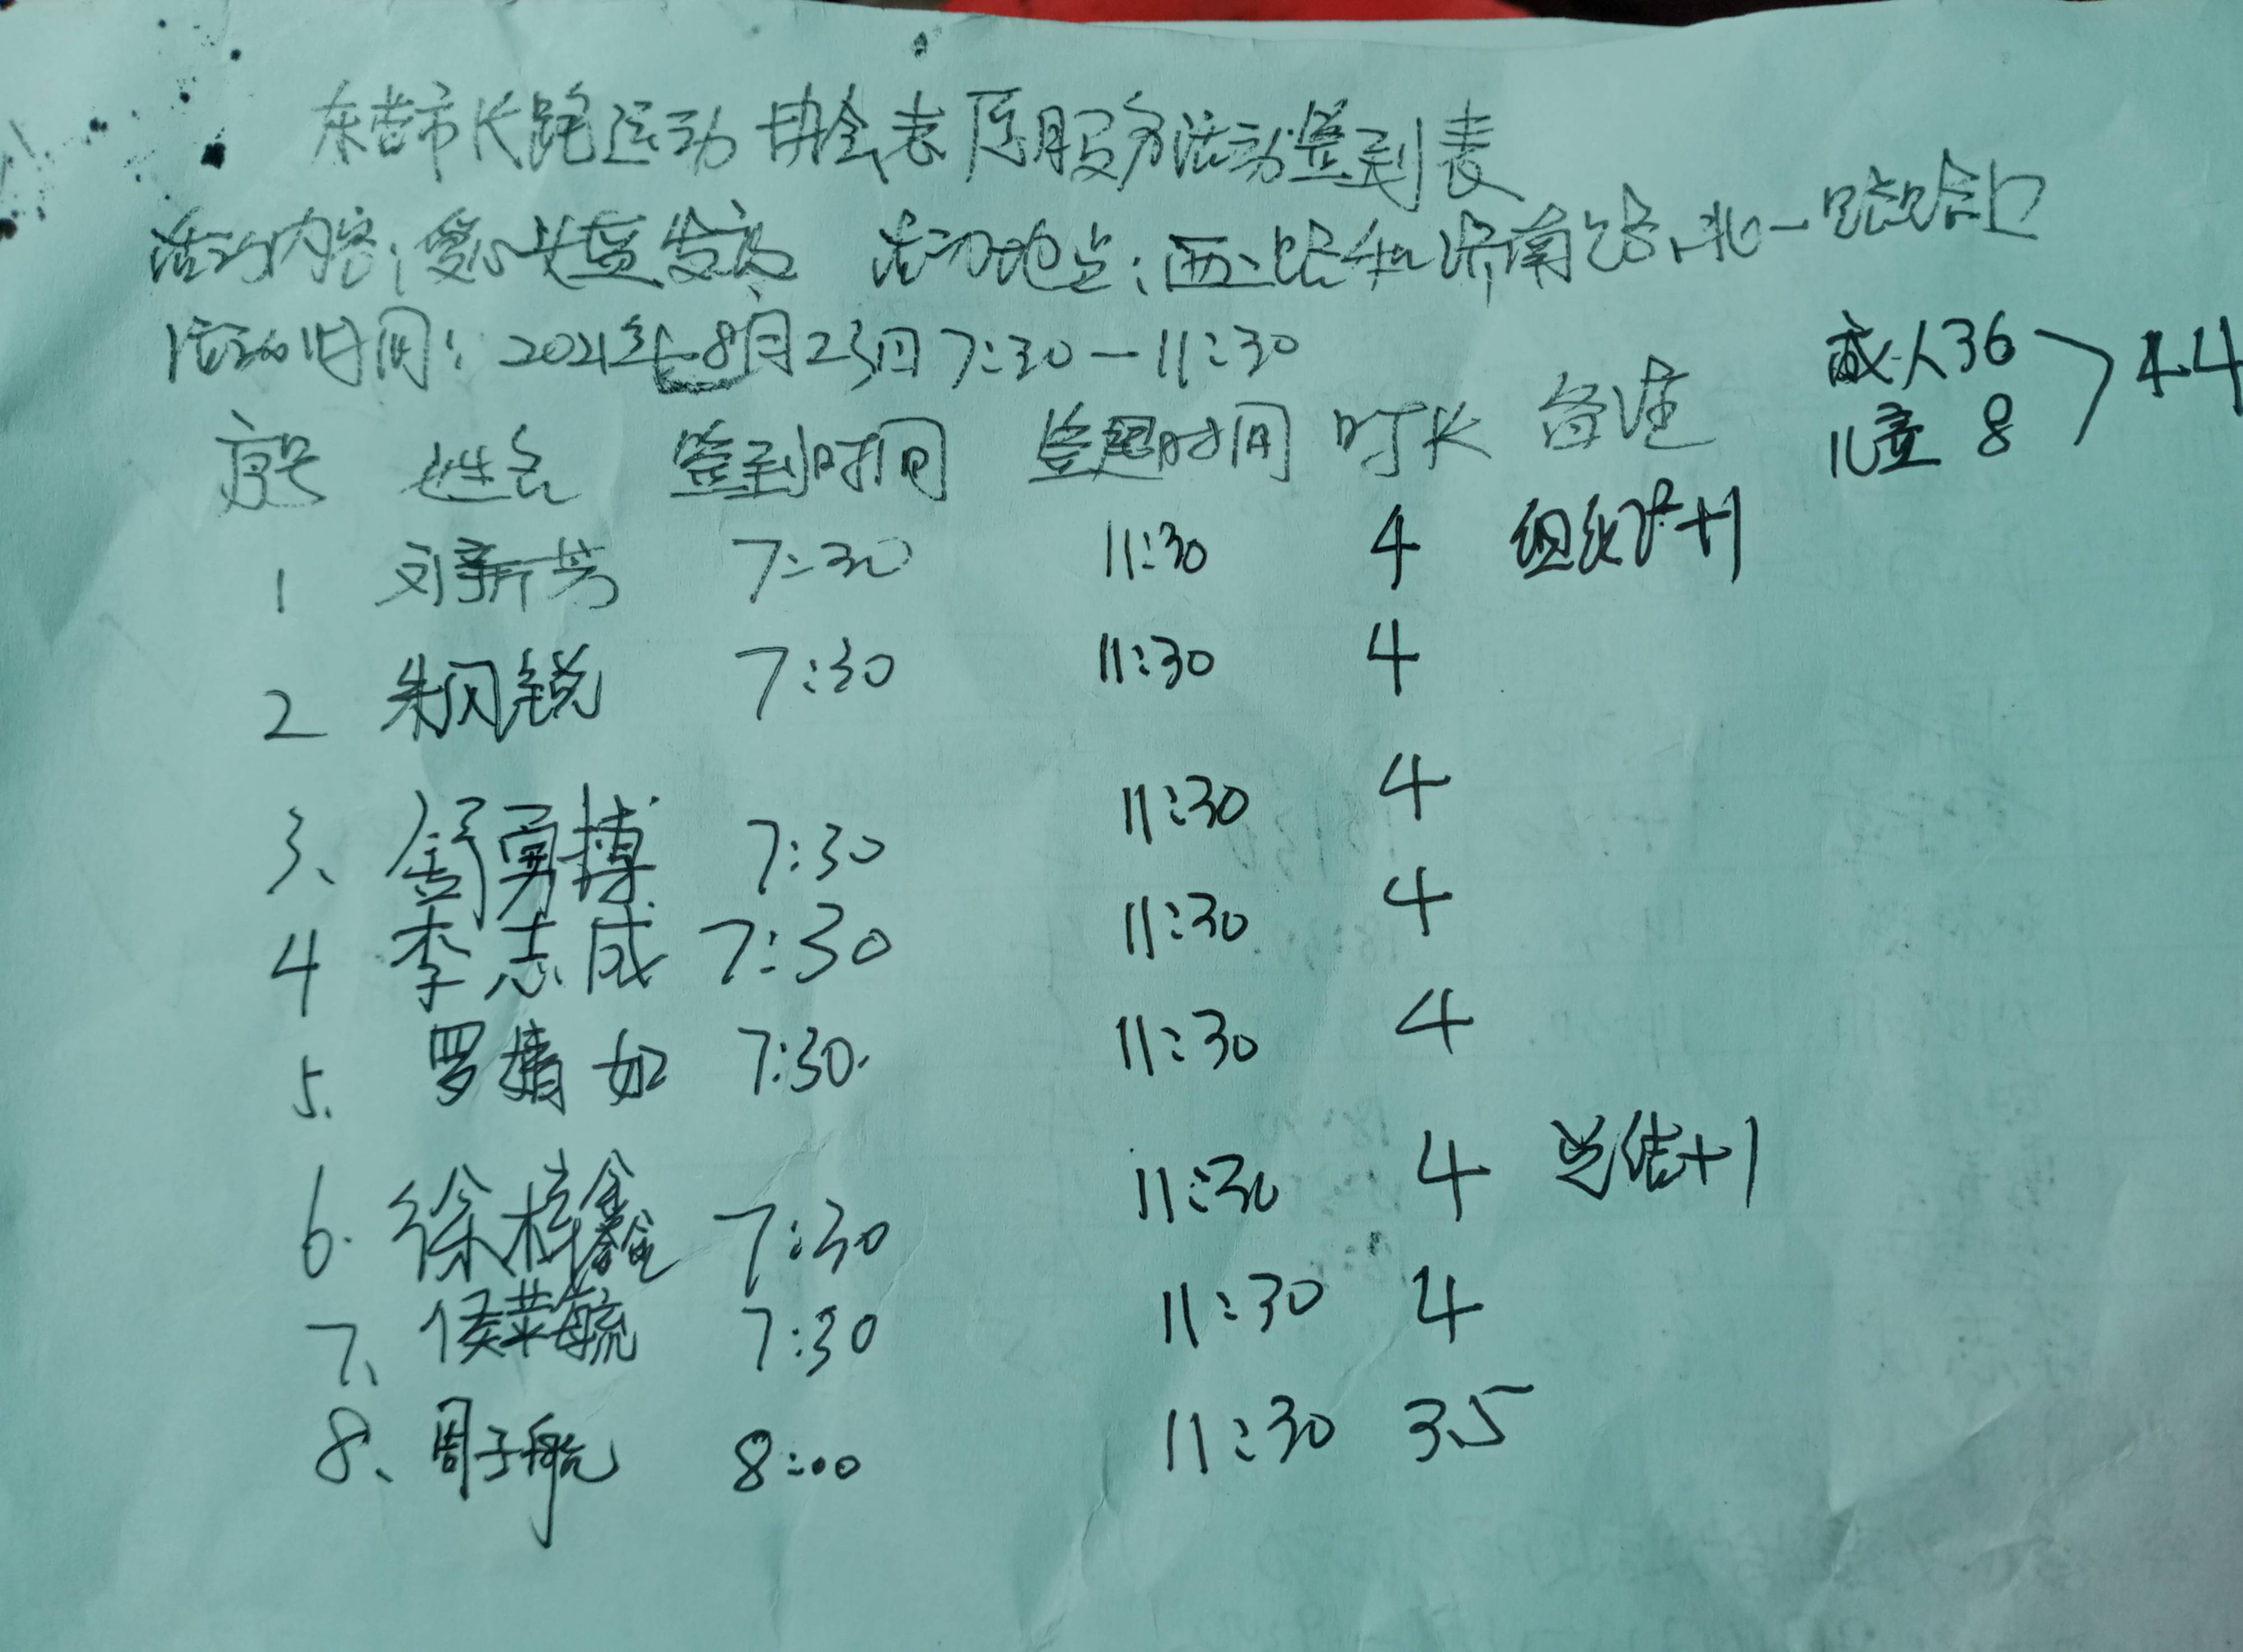 东营市长跑运动协会志愿服务活动签到表
活动内容:爱心女童发放 活动地点:西二路和济南路、北一路路口
活动时间:2021年8月23日7:30—11:30
成人36
儿童 8
44
序号 姓名 签到时间 签退时间 时长 备注
1 刘新芳 7:30 11:30 4 组织+1
2 朱闪锐 7:30 11:30 4
3、 舒勇搏 7:30 11:30 4
4 李志成 7:30 11:30 4
5. 罗婧如 7:30. 11:30 4
6. 徐梓鑫 7:30 11:30 4 总结+1
7、 侯苹毓 7:30 11:30 4
8、 周子航 8:00 11:30 3.5